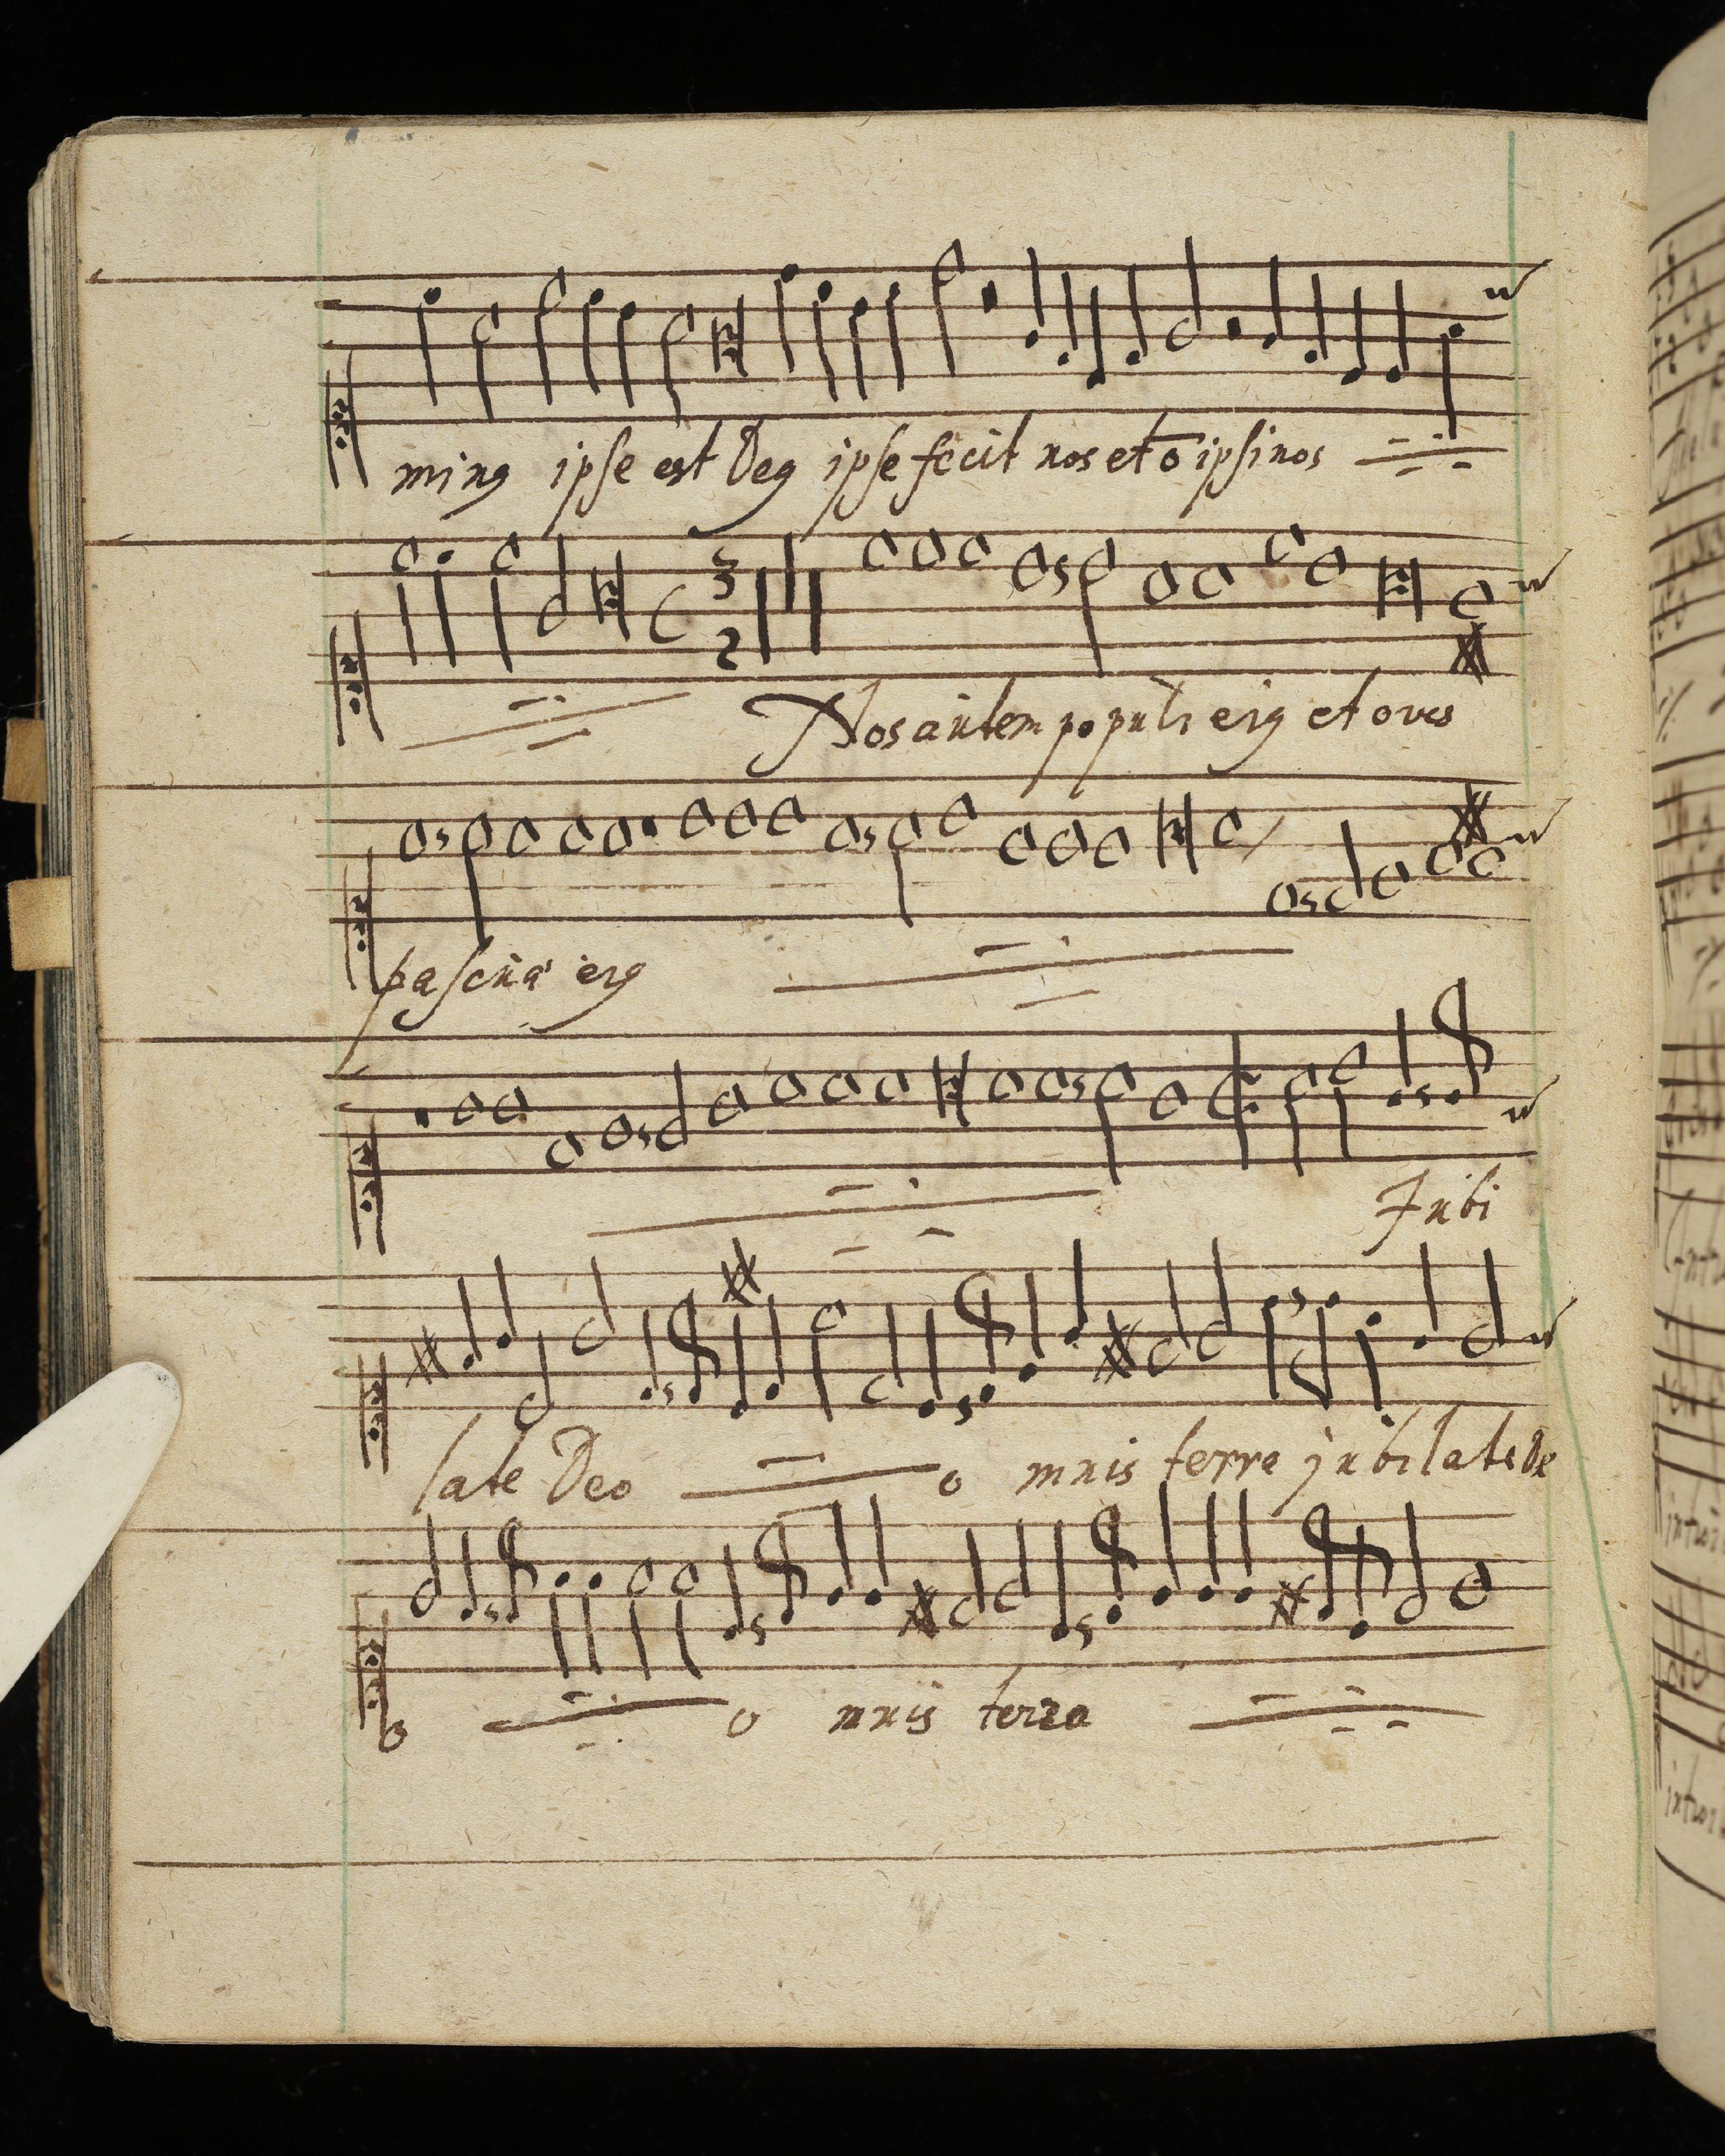 ming ipse est Deg ipse fecit nos et o̅ ipsi nos
3
2
Nos autem populi eig et oves
pascua eig
Jubi
late Deo o mnis terra jubilate De
o o mnis terra